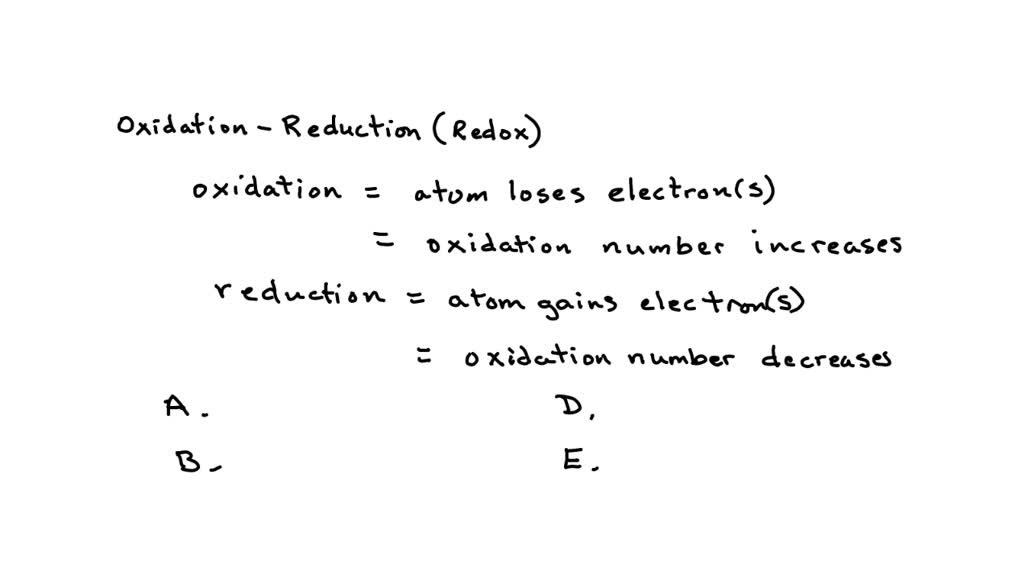 Oxidation - Reduction (Redox)
oxidation = atom loses electron(s)
= oxidation number increases
reduction = atom gains electron(s)
= oxidation number decreases
A. D.
B. E.